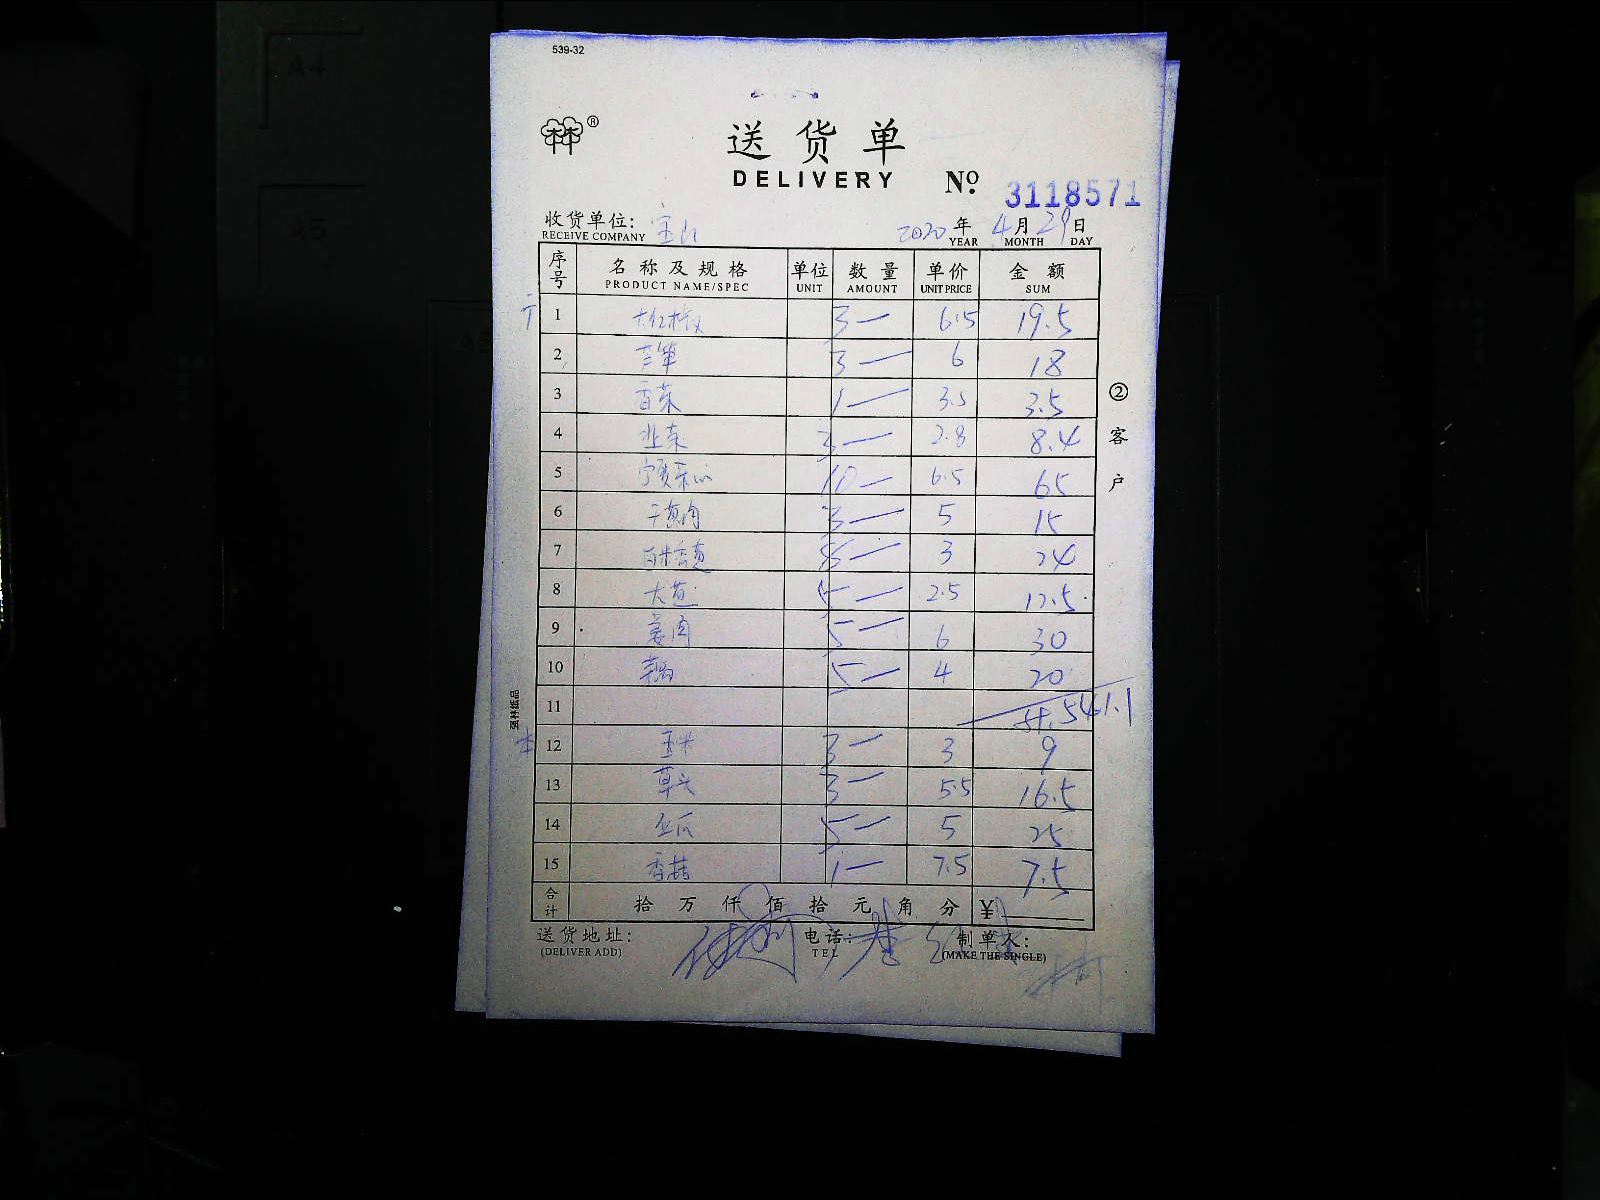 539-32
®
送货单
DELIVERY
№ 3118571
收货单位: 宝山
RECEIVE COMPANY
2020 年 4 月 29 日
YEAR MONTH DAY
序号 名称及规格 单位 数量 单价 金额
PRODUCT NAME/SPEC UNIT AMOUNT UNIT PRICE SUM
1 大红椒 3 — 6.5 19.5
2 3 — 6 18
3 香菜 1 — 3.5 3.5
4 韭菜 3 — 2.8 8.4
5 宁夏菜心 10 — 6.5 65
6 干葱肉 3 — 5 15
7 3 24
8 大葱 5 — 2.5 12.5
9 姜肉 5 — 6 30
10 5 — 4 20
11 541.1
12 玉米 3 — 3 9
13 草头 3 — 5.5 16.5
14 丝瓜 5 — 5 25
15 香菇 1 — 7.5 7.5
合计 拾 万 仟 佰 拾 元 角 分 ¥
送货地址: 电话: 制单人:
(DELIVER ADD) TEL (MAKE THE SINGLE)
② 客户
强林纸品